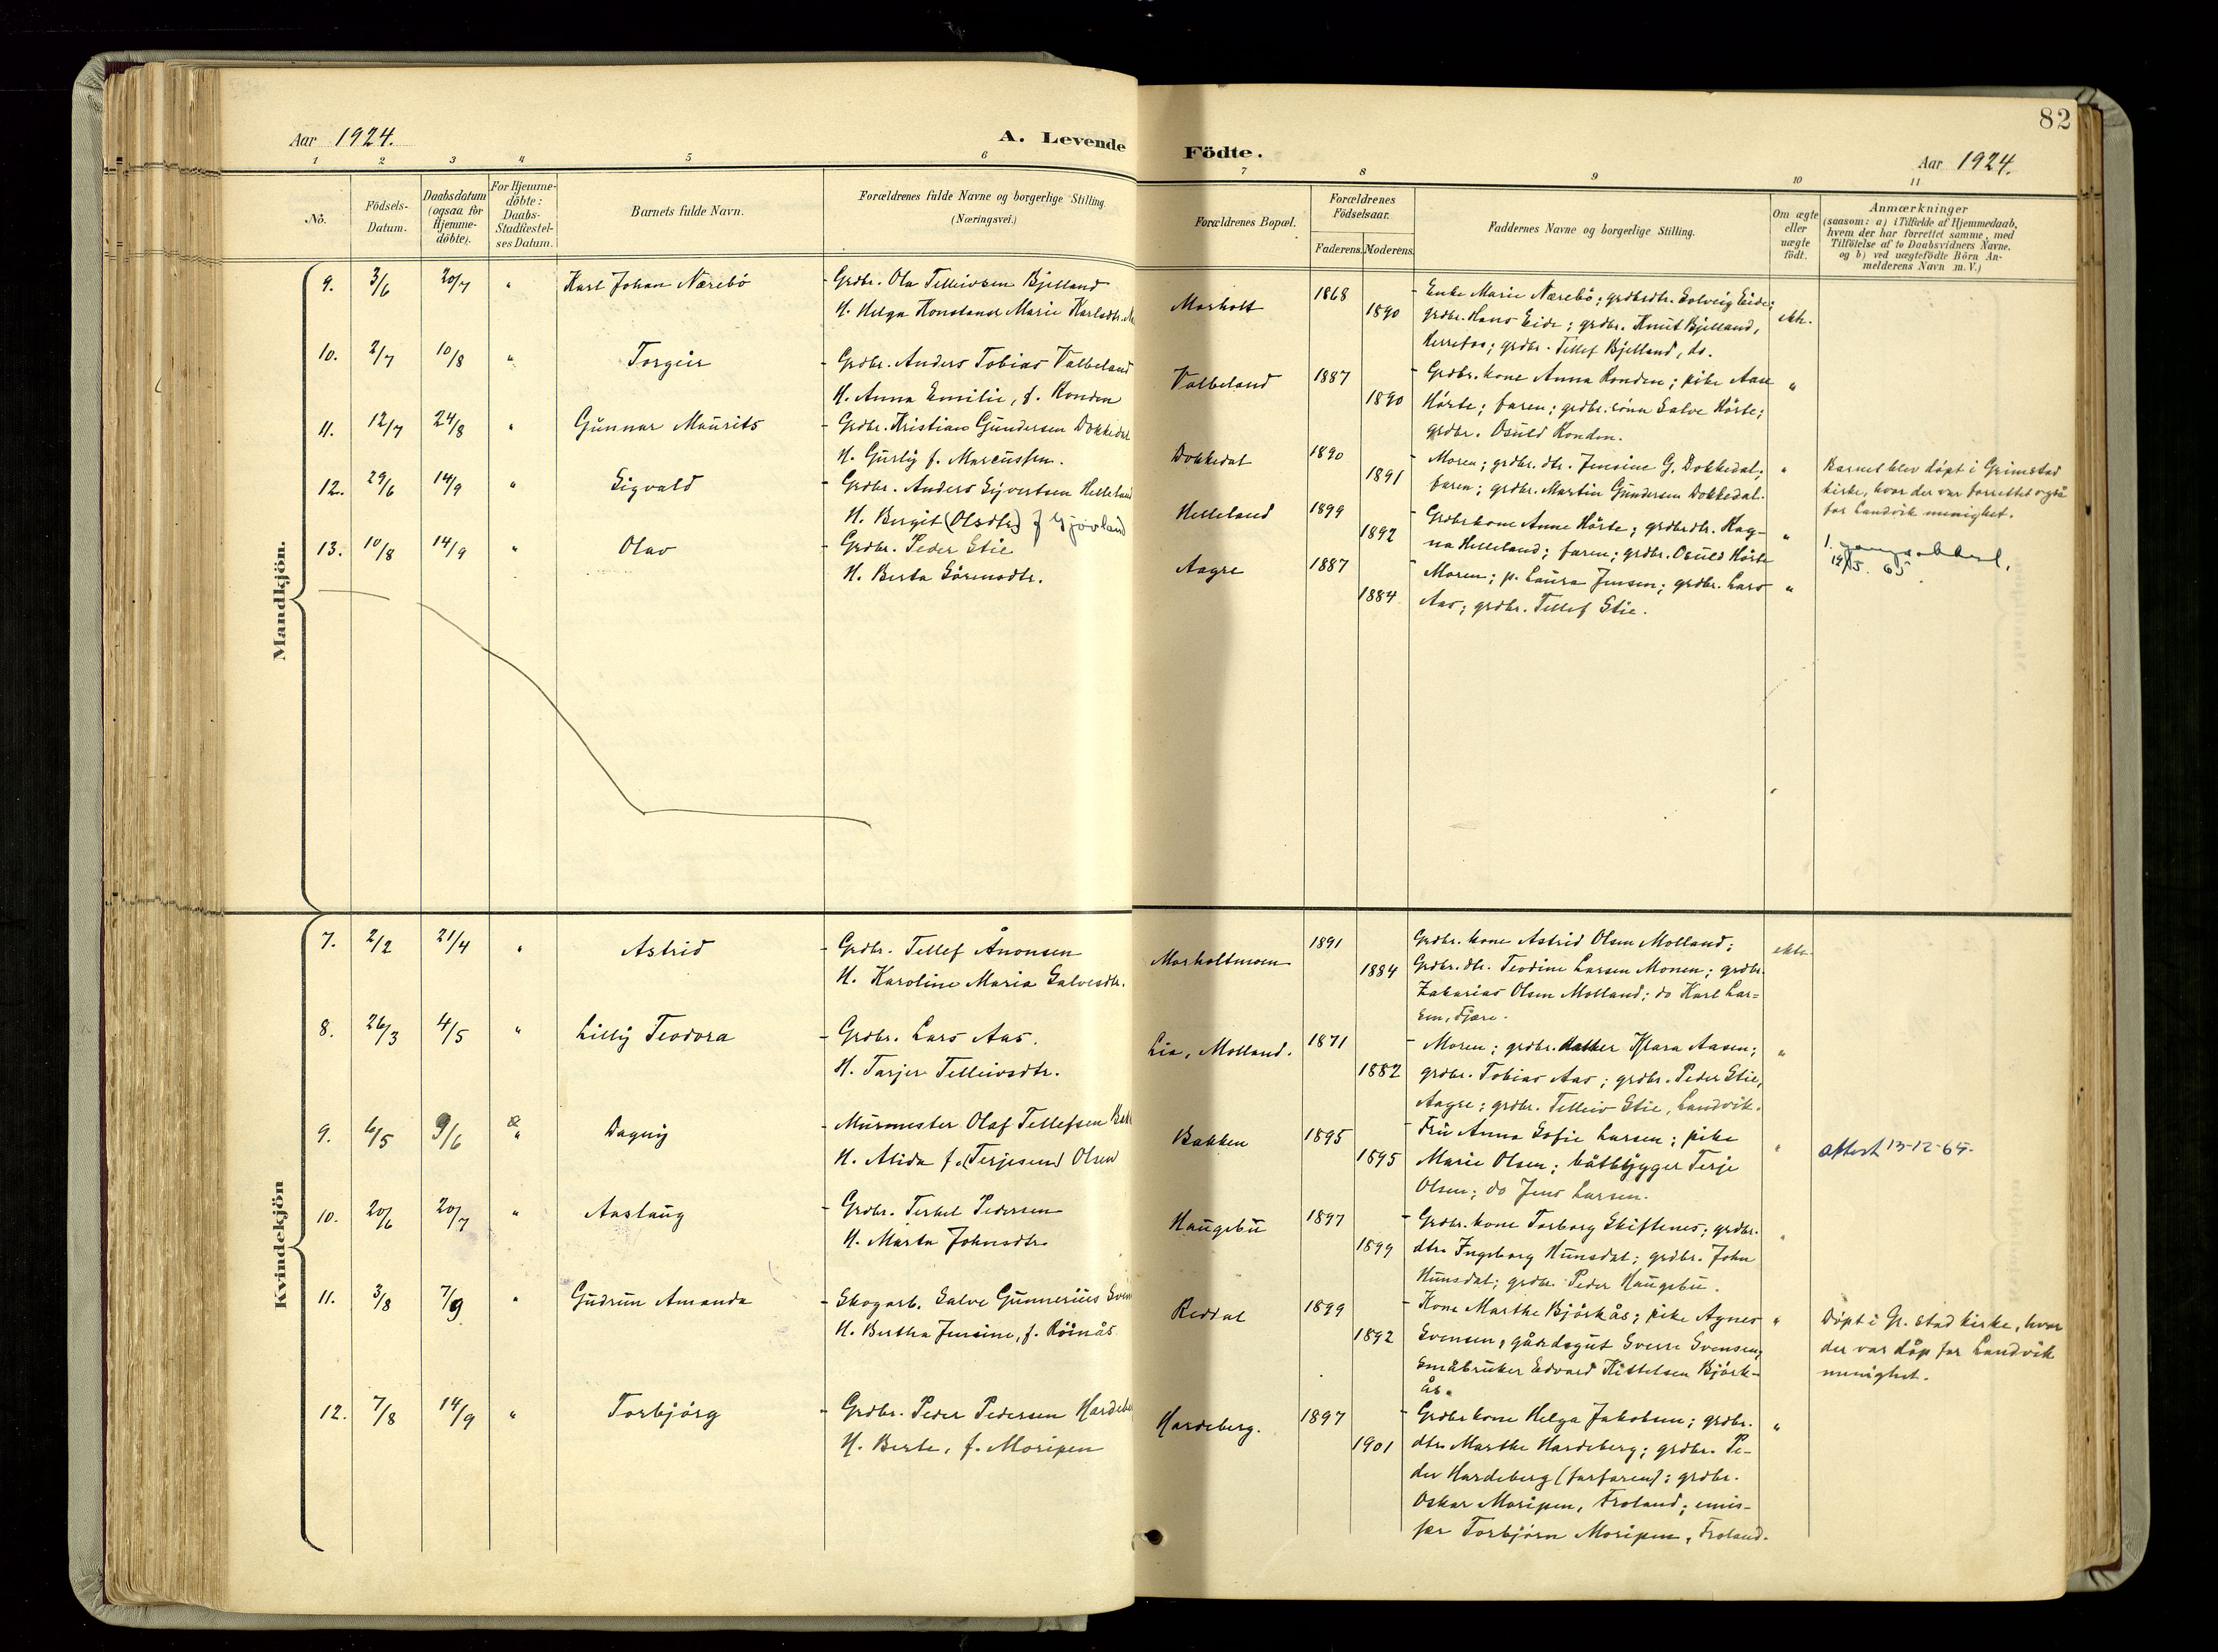 82
Aar 1924.
A. Levende
Födte.
Aar 1924.
1 2 3 4 5 6 7 8 9 10 11
No.
Födsels-Datum.
Daabsdatum (ogsaa for Hjemme-döbte).
For Hjemme-döbte: Daabs-Stadfæstel-ses Datum.
Barnets fulde Navn.
Forældrenes fulde Navne og borgerlige Stilling. (Næringsvei.)
Forældrenes Bopæl.
Forældrenes Födselsaar.
Faderens. Moderens.
Faddernes Navne og borgerlige Stilling.
Om ægte eller uægte födt.
Anmærkninger
(saasom: a) i Tilfælde af Hjemmedaab,
hvem der har forrettet samme, med
Tilföielse af to Daabsvidners Navne.
og b) ved uægtefödte Börn An-
melderens Navn m. V.)
Mandkjön.
9. 3/6 20/7 " Karl Johan Nærebö - Grdbr. Ola Telleivsen Bjelland
H. Helga Konstanse Marie Karlsdtr. N
Morholt 1868 1890
- Enke Marie Nærebö; grdbrdtr. Solveig Eide;
grdbr. Hans Eide; grdbr. Knut Bjelland,
Herrefos; grdbr. Tellef Bjelland, do.
ekte.
10. 2/7 10/8 " Torgeir - Grdbr. Anders Tobias Valbeland
H. Anna Emilie, f. Konden
Valbeland 1887 1890
- Grdbr. kone Anna Konden; pike Aase
Hörte; faren; grdbr. sönn Salve Hörte;
grdbr. Osuld Konden.
"
11. 12/7 24/8 " Gunnar Maurits - Grdbr. Kristian Gundersen Dokkedal
H. Gurly f. Marcussen.
Dokkedal 1890 1891
- Moren; grdbr. dtr. Jensine G. Dokkedal;
faren; grdbr. Martin Gundersen Dokkedal.
"
Barnet blev döpt i Grimstad
kirke, hvor der var forrettet også
for Landvik menighet.
12. 29/6 14/9 " Sigvald - Grdbr. Anders Syvertsen Helleland
H. Bergit (Olsdtr) f Gjövland
Helleland 1899 1892
- Grdbrkone Anne Hörte; grdbrdtr. Rag-
na Helleland; faren; grdbr. Osuld Hörte
"
1. gangsattest.
12/5. 65
13. 10/8 14/9 " Olav - Grdbr. Peder Stie
H. Berta Sörensdtr.
Aagre 1887 1884
- Moren; p. Laura Jensen; grdbr. Lars
Aas; grdbr. Tellef Stie.
"
Kvindekjön
7. 2/2 21/4 " Astrid - Grdbr. Tellef Ånonsen
H. Karoline Maria Salvesdtr.
Morholtmoen 1891 1884
Grdbr. kone Astrid Olsen Molland;
Grdbr. dtr. Teodine Larsen Monen; grdbr.
Zakarias Olsen Molland; do Karl Lar=
sen, Fjære.
ekte.
8. 26/3 4/5 " Lilly Teodora - Grdbr. Lars Aas.
H. Tarjer Telleivsdtr.
Lia, Molland. 1871 1882
- Moren; grdbr. datter Klara Aasen;
grdbr. Tobias Aas; grdbr. Peder Stie,
Aagre; grdbr. Telleiv Stie, Landvik.
"
9. 6/5 9/6 " Dagny - Murmester Olaf Tellefsen Bakk
H. Alida f. (Terjesen) Olsen
Bakken 1895 1895
- Fru Anna Sofie Larsen; pike
Marie Olsen; båtbygger Terje
Olsen; do Jens Larsen.
"
attest 13-12-65.
10. 20/6 20/7 " Aaslaug - Grdbr. Terkel Pedersen
H. Marta Johnsdtr.
Haugebu 1897 1899
- Grdbr. kone Torborg Skiftenes; grdbr.
dtr. Ingeborg Hunsdal; grdbr. John
Hunsdal; grdbr. Peder Haugebu.
"
11. 3/8 7/9 " Gudrun Amanda - Skogarb. Salve Gunnerius Sven
H. Bertha Jensine, f. Röinås
Reddal 1899 1892
- Kone Marthe Björkås; pike Agnes
Svensen; gårdsgut Sverre Svensen;
Småbruker Edvard Kittelsen Björk-
ås.
"
Döpt i Gr. stad kirke, hvor
der var dåp for Landvik
menighet.
12. 7/8 14/9 " Torbjörg - Grdbr. Peder Pedersen Hardeber
H. Berte, f. Moripen
Hardeberg. 1897 1901
- Grdbr kone Helga Jakobsen; grdbr.
dtr. Marthe Hardeberg; grdbr. Pe-
der Hardeberg (farfaren); grdbr.
Oskar Moripen, Froland; emis-
sær Torbjörn Moripen, Froland.
"